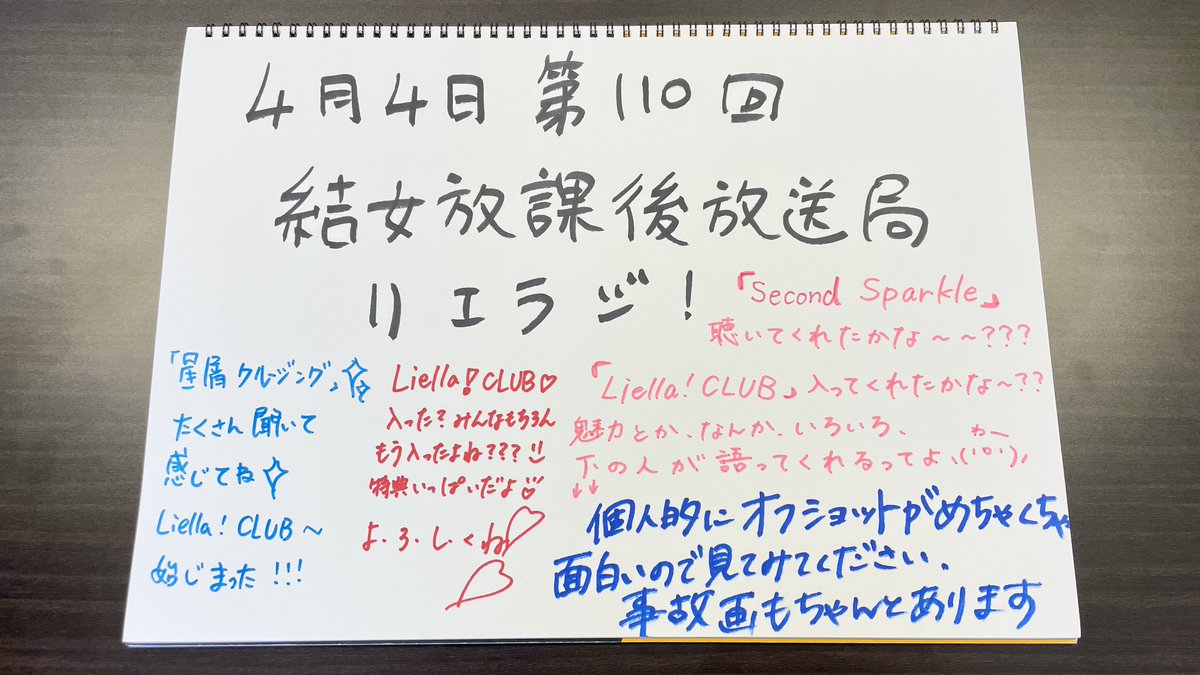 4月4日 第110回
結女放課後放送局
リエラジ!
「星屑クルージング」
たくさん聞いて
感じてね
Liella! CLUB〜
始じまった!!!
Liella! CLUB♡
入った?みんなもちろん
もう入ったよね???
特典いっぱいだよ
よ.ろ.し.くね♡
「Second Sparkle」
聴いてくれたかな〜〜???
「Liella! CLUB」入ってくれたかな〜??
魅力とか、なんか、いろいろ、
下の人が語ってくれるってよ、
わー
↓↓
個人的にオフショットがめちゃくちゃ
面白いので見てみてください、
事故画もちゃんとあります